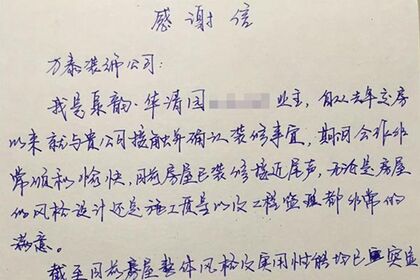 感谢信
万泰装饰公司:
我是集韵·华清园 业主,自从去年交房
以来就与贵公司接触并确认装修事宜,期间合作非
常顺利愉快,目前房屋已装修接近尾声,无论是房屋
的风格设计还是施工质量以及工程监理都非常的
满意。
截至目前房屋整体风格及实用性能均已